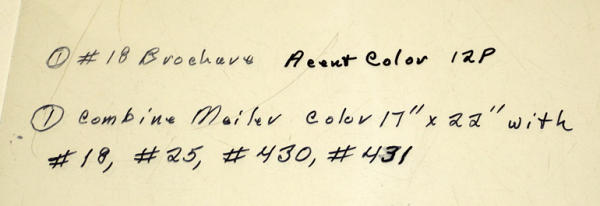 ① #18 Brochure Acent Color 12P
① Combine Mailer Color 17" x 22" with
#18, #25, #430, #431